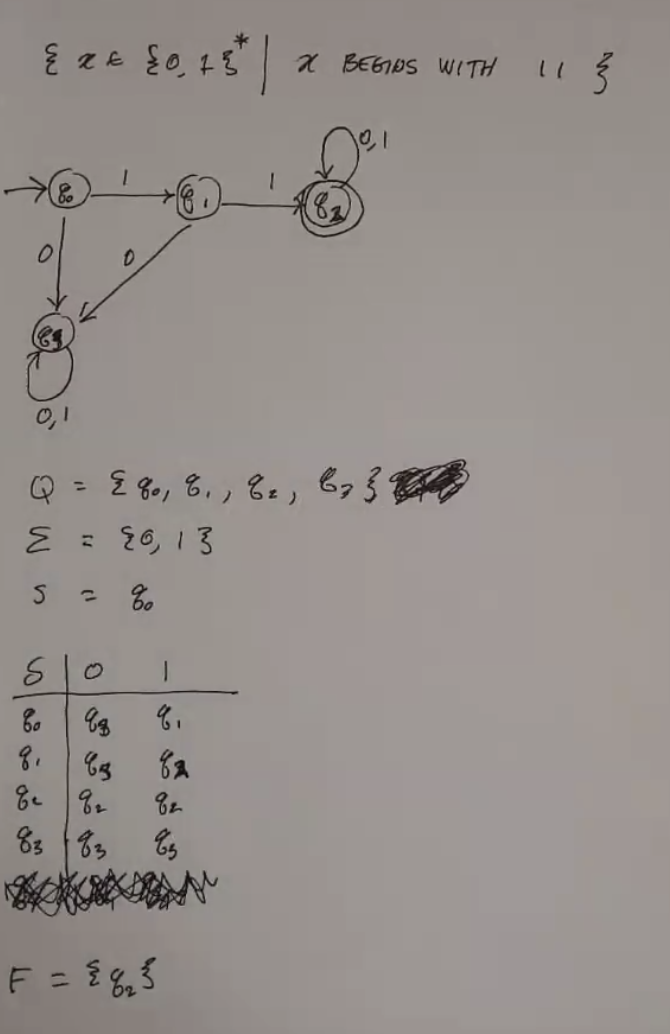 { x ∈ {0,1}* | x BEGINS WITH 11 }
0,1
q₀ 1 q₁ 1 q₂
0 0
q₃
0,1
Q = {q₀, q₁, q₂, q₃}
Σ = {0, 1}
S = q₀
δ 0 1
q₀ q₃ q₁
q₁ q₃ q₂
q₂ q₂ q₂
q₃ q₃ q₃
F = {q₂}